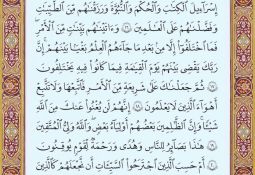 إِسْرَٰٓءِيلَ ٱلْكِتَٰبَ وَٱلْحُكْمَ وَٱلنُّبُوَّةَ وَرَزَقْنَٰهُم مِّنَ ٱلطَّيِّبَٰتِ
وَفَضَّلْنَٰهُمْ عَلَى ٱلْعَٰلَمِينَ ١٦ وَءَاتَيْنَٰهُم بَيِّنَٰتٍ مِّنَ ٱلْأَمْرِ
فَمَا ٱخْتَلَفُوٓا۟ إِلَّا مِنۢ بَعْدِ مَا جَآءَهُمُ ٱلْعِلْمُ بَغْيًۢا بَيْنَهُمْ إِنَّ
رَبَّكَ يَقْضِى بَيْنَهُمْ يَوْمَ ٱلْقِيَٰمَةِ فِيمَا كَانُوا۟ فِيهِ يَخْتَلِفُونَ
١٧ ثُمَّ جَعَلْنَٰكَ عَلَىٰ شَرِيعَةٍ مِّنَ ٱلْأَمْرِ فَٱتَّبِعْهَا وَلَا تَتَّبِعْ
أَهْوَآءَ ٱلَّذِينَ لَا يَعْلَمُونَ ١٨ إِنَّهُمْ لَن يُغْنُوا۟ عَنكَ مِنَ ٱللَّهِ
شَيْـًٔا وَإِنَّ ٱلظَّٰلِمِينَ بَعْضُهُمْ أَوْلِيَآءُ بَعْضٍ وَٱللَّهُ وَلِىُّ ٱلْمُتَّقِينَ
١٩ هَٰذَا بَصَٰٓئِرُ لِلنَّاسِ وَهُدًى وَرَحْمَةٌ لِّقَوْمٍ يُوقِنُونَ
٢٠ أَمْ حَسِبَ ٱلَّذِينَ ٱجْتَرَحُوا۟ ٱلسَّيِّـَٔاتِ أَن نَّجْعَلَهُمْ كَٱلَّذِينَ